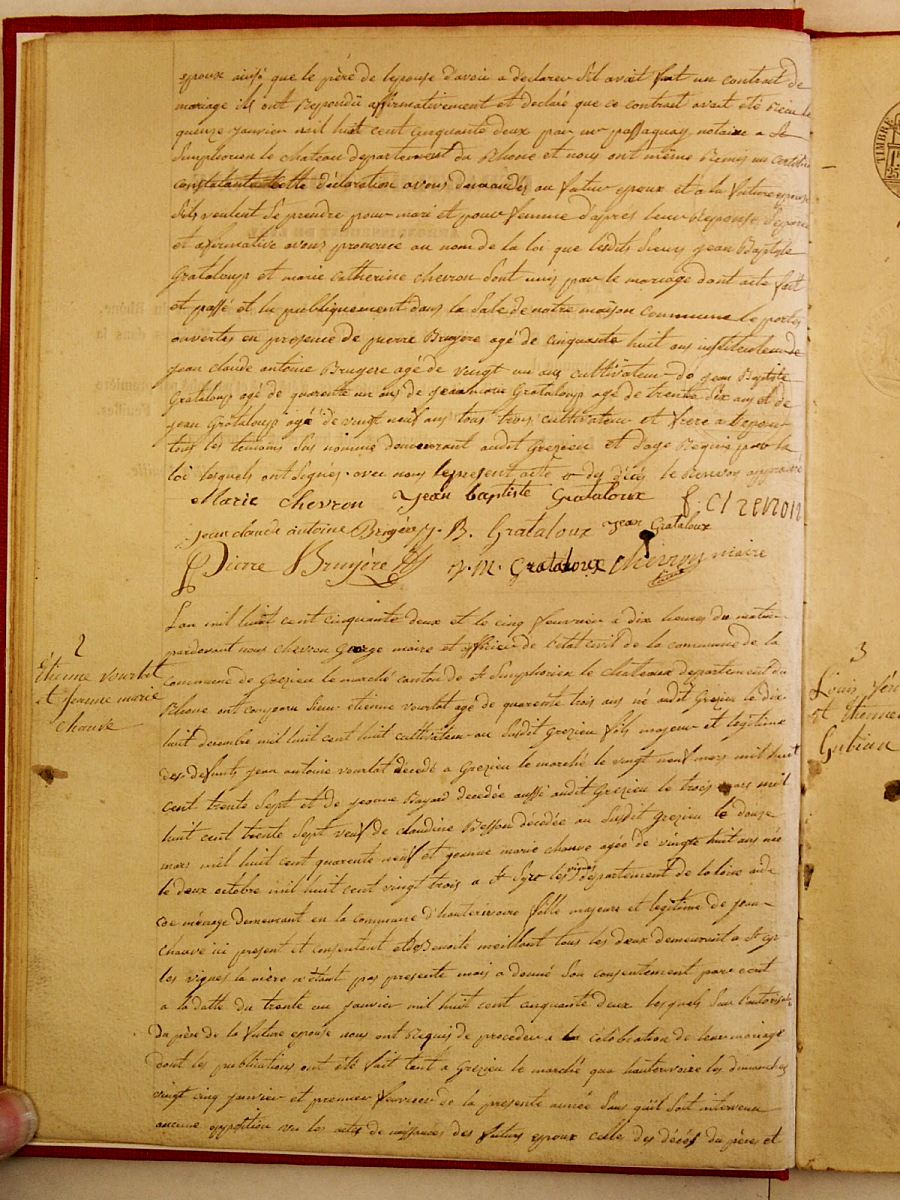 epoux ainsi que le père de lepouse davoir a declarer sil avait fait un contrat de
mariage ils ont Repondu affirmativement et declaré que ce contrat avait été Recu le
quinze janvier mil huit cent cinquante deux par mr passaquay notaire a St
Simphorien le chateau departement du Rhone et nous ont même Remis un certificat
constatant Cette déclaration avons demandés au futur epoux et a la future epouse
Sils veulent Se prendre pour mari et pour femme d'après leur Reponse Séparée
et afirmative avons prononcé au nom de la loi que lesdits Sieurs jean Baptiste
Grataloup et marie catherine chevron Sont unis par le mariage dont acte fait
et passé et lu publiquement dans la Sale de notre maison Commune les portes
ouvertes en presence de pierre Bruyere agé de cinquante huit ans instituteur de
jean claude antoine Bruyere agé de vingt un ans cultivateur de jean Baptiste
Grataloup agé de quarente un ans de jean marie Grataloup agé de trente Six ans et de
jean Grataloup agé de vingt neuf ans tous trois cultivateur et frere a lepoux
tous les temoins Sus nommé demeurant audit Grezieu et d'age Requis par la
loi lesquels ont Signés avec nous le present acte le Renvoi approuvé
Marie chevron jean baptiste Grataloux f. Chevron
jean claude antoine Bruyère J. B. Grataloux jean Grataloux
Pierre Bruyère J. M. Grataloux Chevron maire
2
étienne vourlat
et jeanne marie
chauve
Lan mil huit cent cinquante deux et le cinq fevrier a dix heures du matin
pardevant nous chevron George maire et officier de l'etat civil de la commune de la
commune de Grezieu le marché canton de St Simphorien le chateau departement du
Rhone ont comparu Sieur etienne vourlat agé de quarente trois ans né audit Grezieu le dix
huit decembre mil huit cent huit cultivateur au Susdit Grezieu fils majeur et legitime
des defunts jean antoine vourlat décédé a Grezieu le marché le vingt neuf mars mil huit
cent trente Sept et de jeanne Bayard decedée aussi audit Grezieu le trois mars mil
huit cent trente Sept veuf de claudine Besson décedée au Susdit Grezieu le douze
mars mil huit cent quarente neuf et jeanne marie chauve agée de vingt huit ans née
le deux octobre mil huit cent vingt trois a St Cyr les vignes departement de la loire aide
de ménage demeurant en la commune d'hauterivoire fille majeure et legitime de jean
chauve ici present et consentant et de Benoite meillant tous les deux demeurent a St cyr
les vignes la mère n'étant pas presente mais a donné Son consentement par ecrit
a la datte du trente un janvier mil huit cent cinquante deux lesquels Sur l'autorisation
Du père de la future epouse nous ont Requis de proceder a la célébration de leur mariage
dont les publications ont été fait tant a Grezieu le marché qua hauterivoire les dimanches
vingt cinq janvier et premier fevrier de la presente année Sans qu'il Soit intervenu
aucune opposition vu les actes de naissances des futurs epoux celle des décés du père et
3
Louis
et étienne
Gubian
TIMBRE